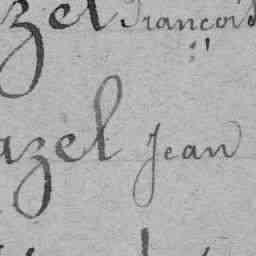 zel François
azel Jean